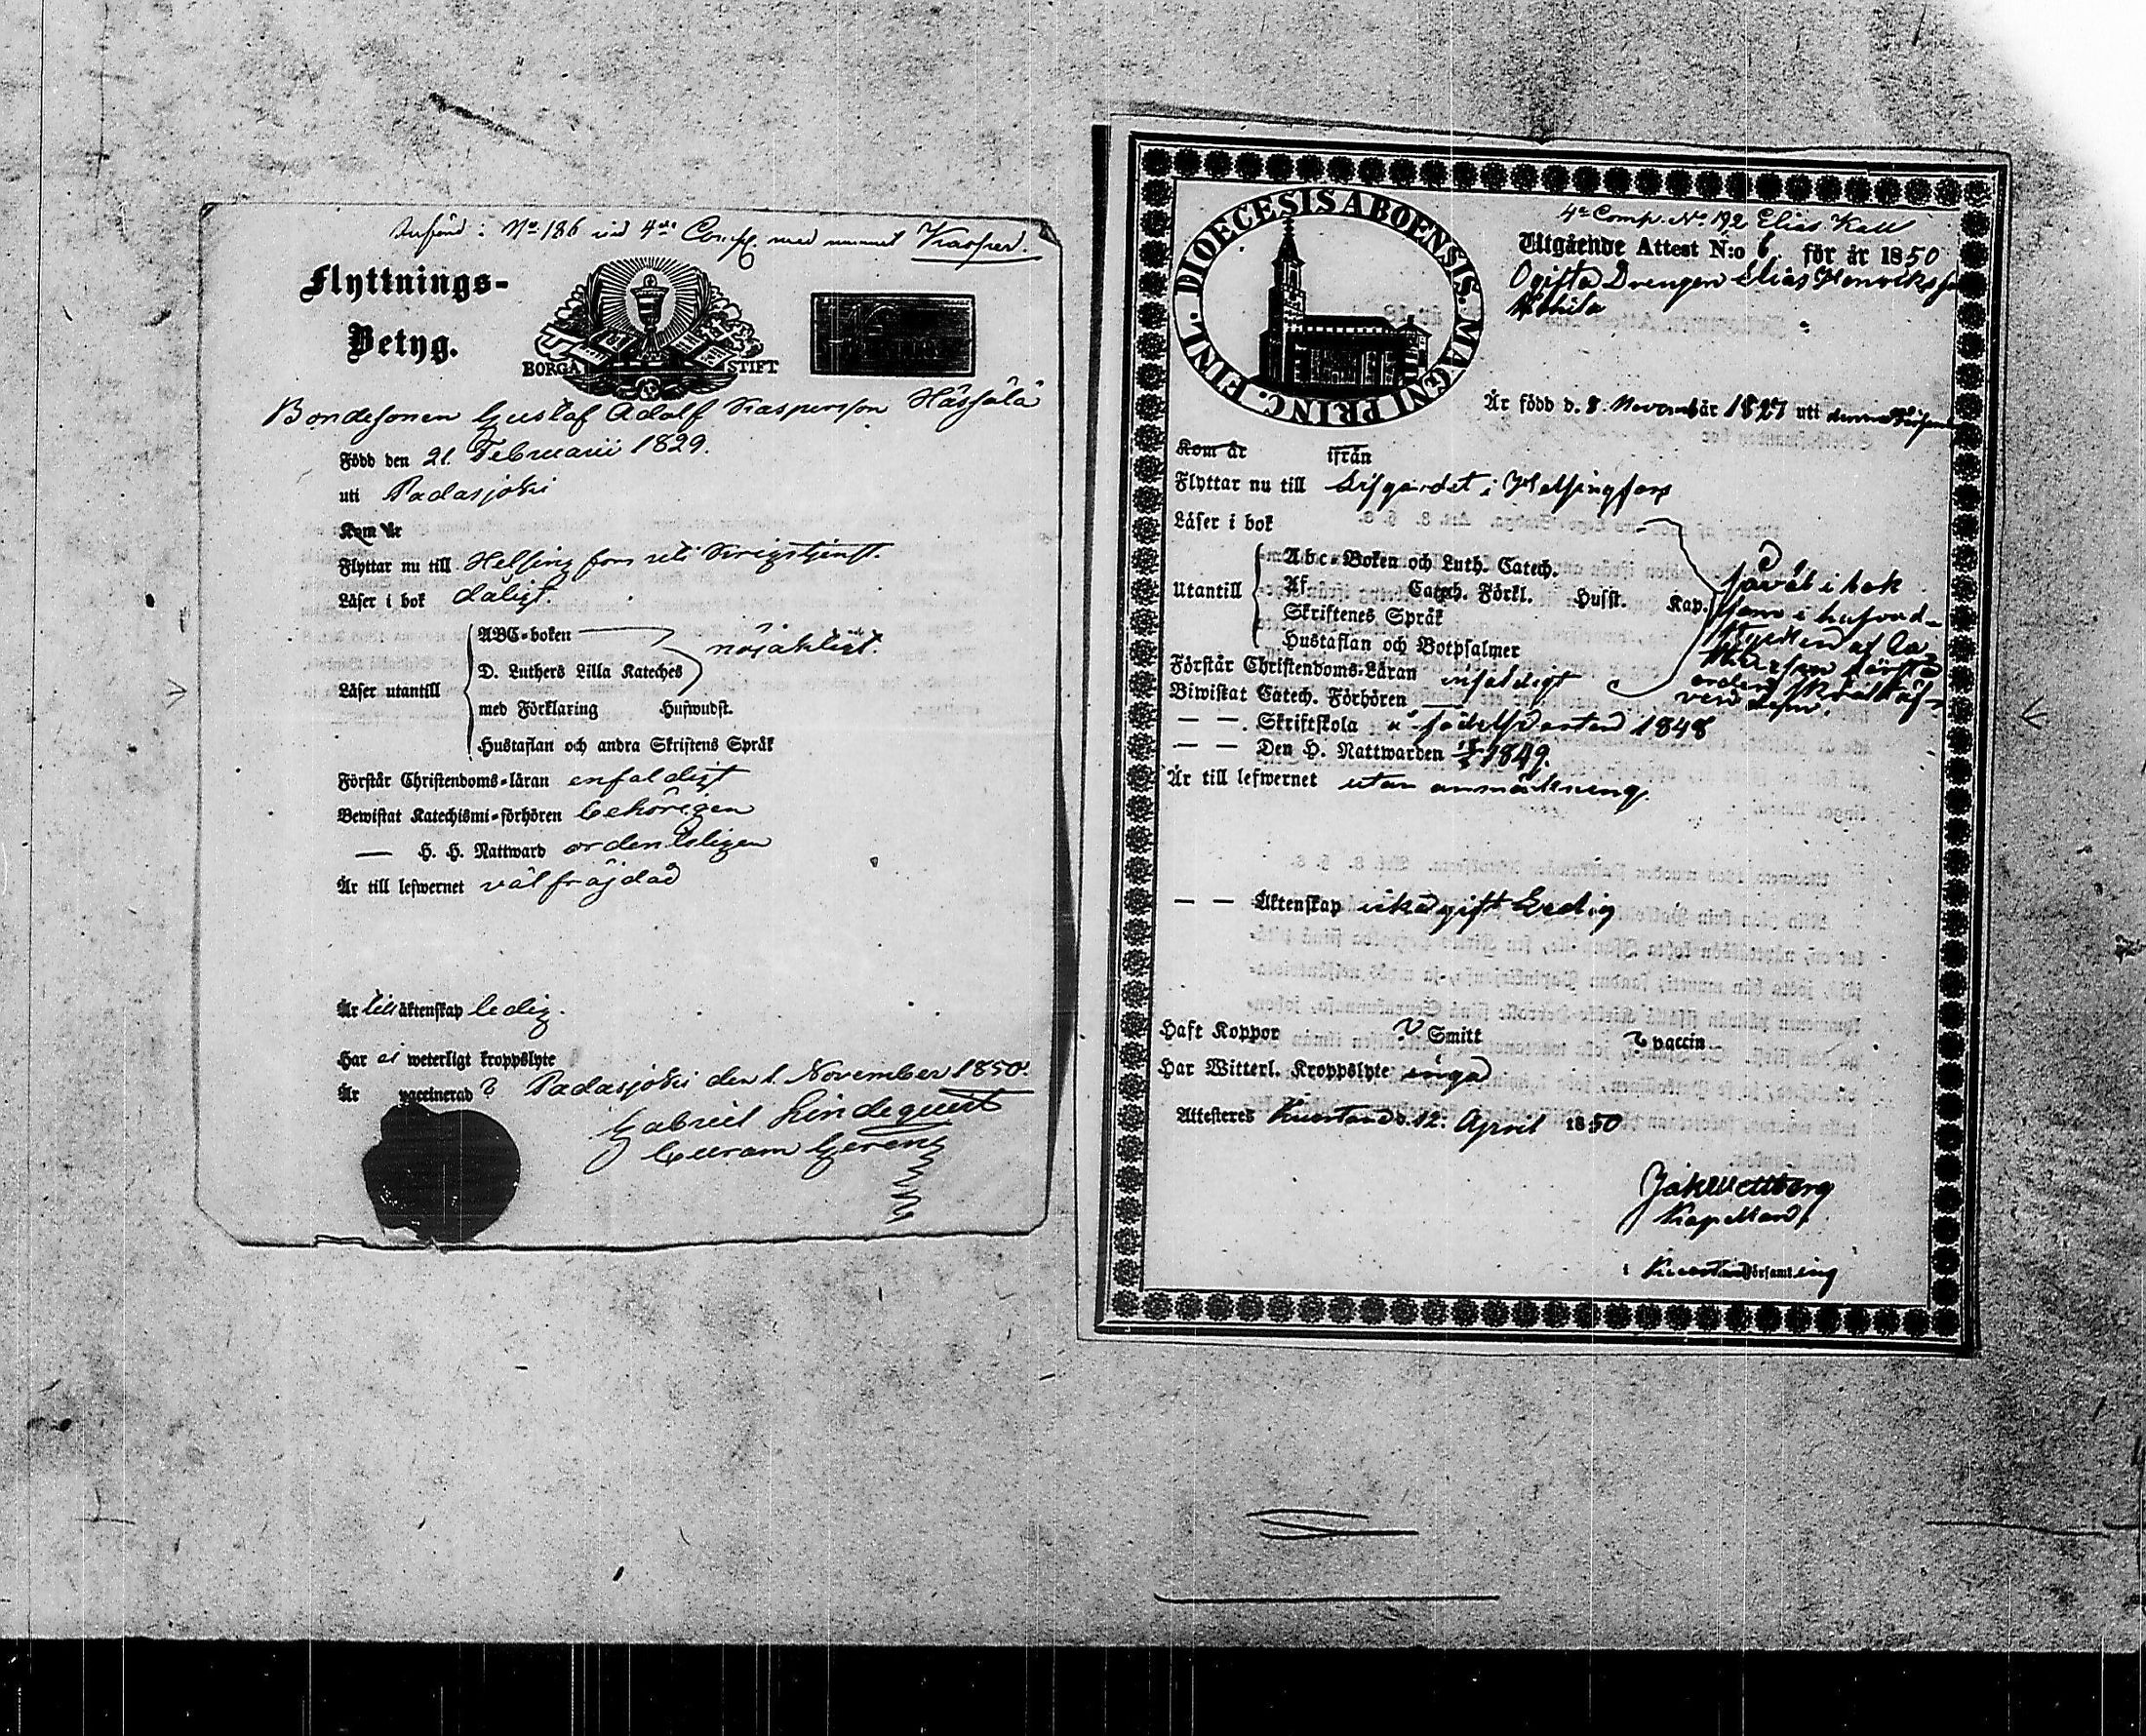 Införd i No 186 vid 4de Comp. med namnet Kasper.
Flyttnings-
Betyg.
BORGÅ STIFT
Bondesonen Gustaf Adolf Kaspersson Hässälä
Född den 21. Februarii 1829.
uti Padasjoki
Kom år
Flyttar nu till Helsingfors uti Krigstjenst.
Läser i bok dåligt.
Läser utantill
ABC-boken
nöjaktigt.
D. Luthers Lilla Kateches
med Förklaring Hufwudst.
Hustaflan och andra Skriftens Språk
Förstår Christendoms-läran enfaldigt
Bewistat Katechismi-förhören behörigen
— H. H. Nattward ordentligen
Är till lefwernet väl fräjdad
Är till äktenskap ledig.
Har ej weterligt kroppslyte
Är vaccinerad ? Padasjoki den 1. November 1850.
Gabriel Lindequist
Curam Gerens
DIOECESIS ABOENSIS. MAGNI PRINC. FINL.
4e Comp. No 192 Elias Kall
Utgående Attest N:o 6 för år 1850
Ogifta Drengen Elias Henriksson
Är född d. 8. November år 1827 uti denna
Kom år ifrån
Flyttar nu till Lifgardet i Helsingfors
Läser i bok
Utantill
Abc-Boken och Luth. Catech.
Af Catech. Förkl. Husst. Kap.
Skriftenes Språk
Hustaflan och Botpsalmer
såväl i bok
som i hufvud-
stycken af Ca-
Förstår Christendoms-Läran enfaldigt
Biwistat Catech. Förhören —
— — Skriftskola å födelseorten 1848
— — Den H. Nattwarden 1849.
Är till lefwernet utan anmärkning.
— — Äktenskap icke gift Ledig
Haft Koppor ? Smitt ? vaccin
Har Witterl. Kroppslyte inga
Attesteres Kuortane d. 12. April 1850
Jak Wettberg
Kapellan
i Kuortane Församling